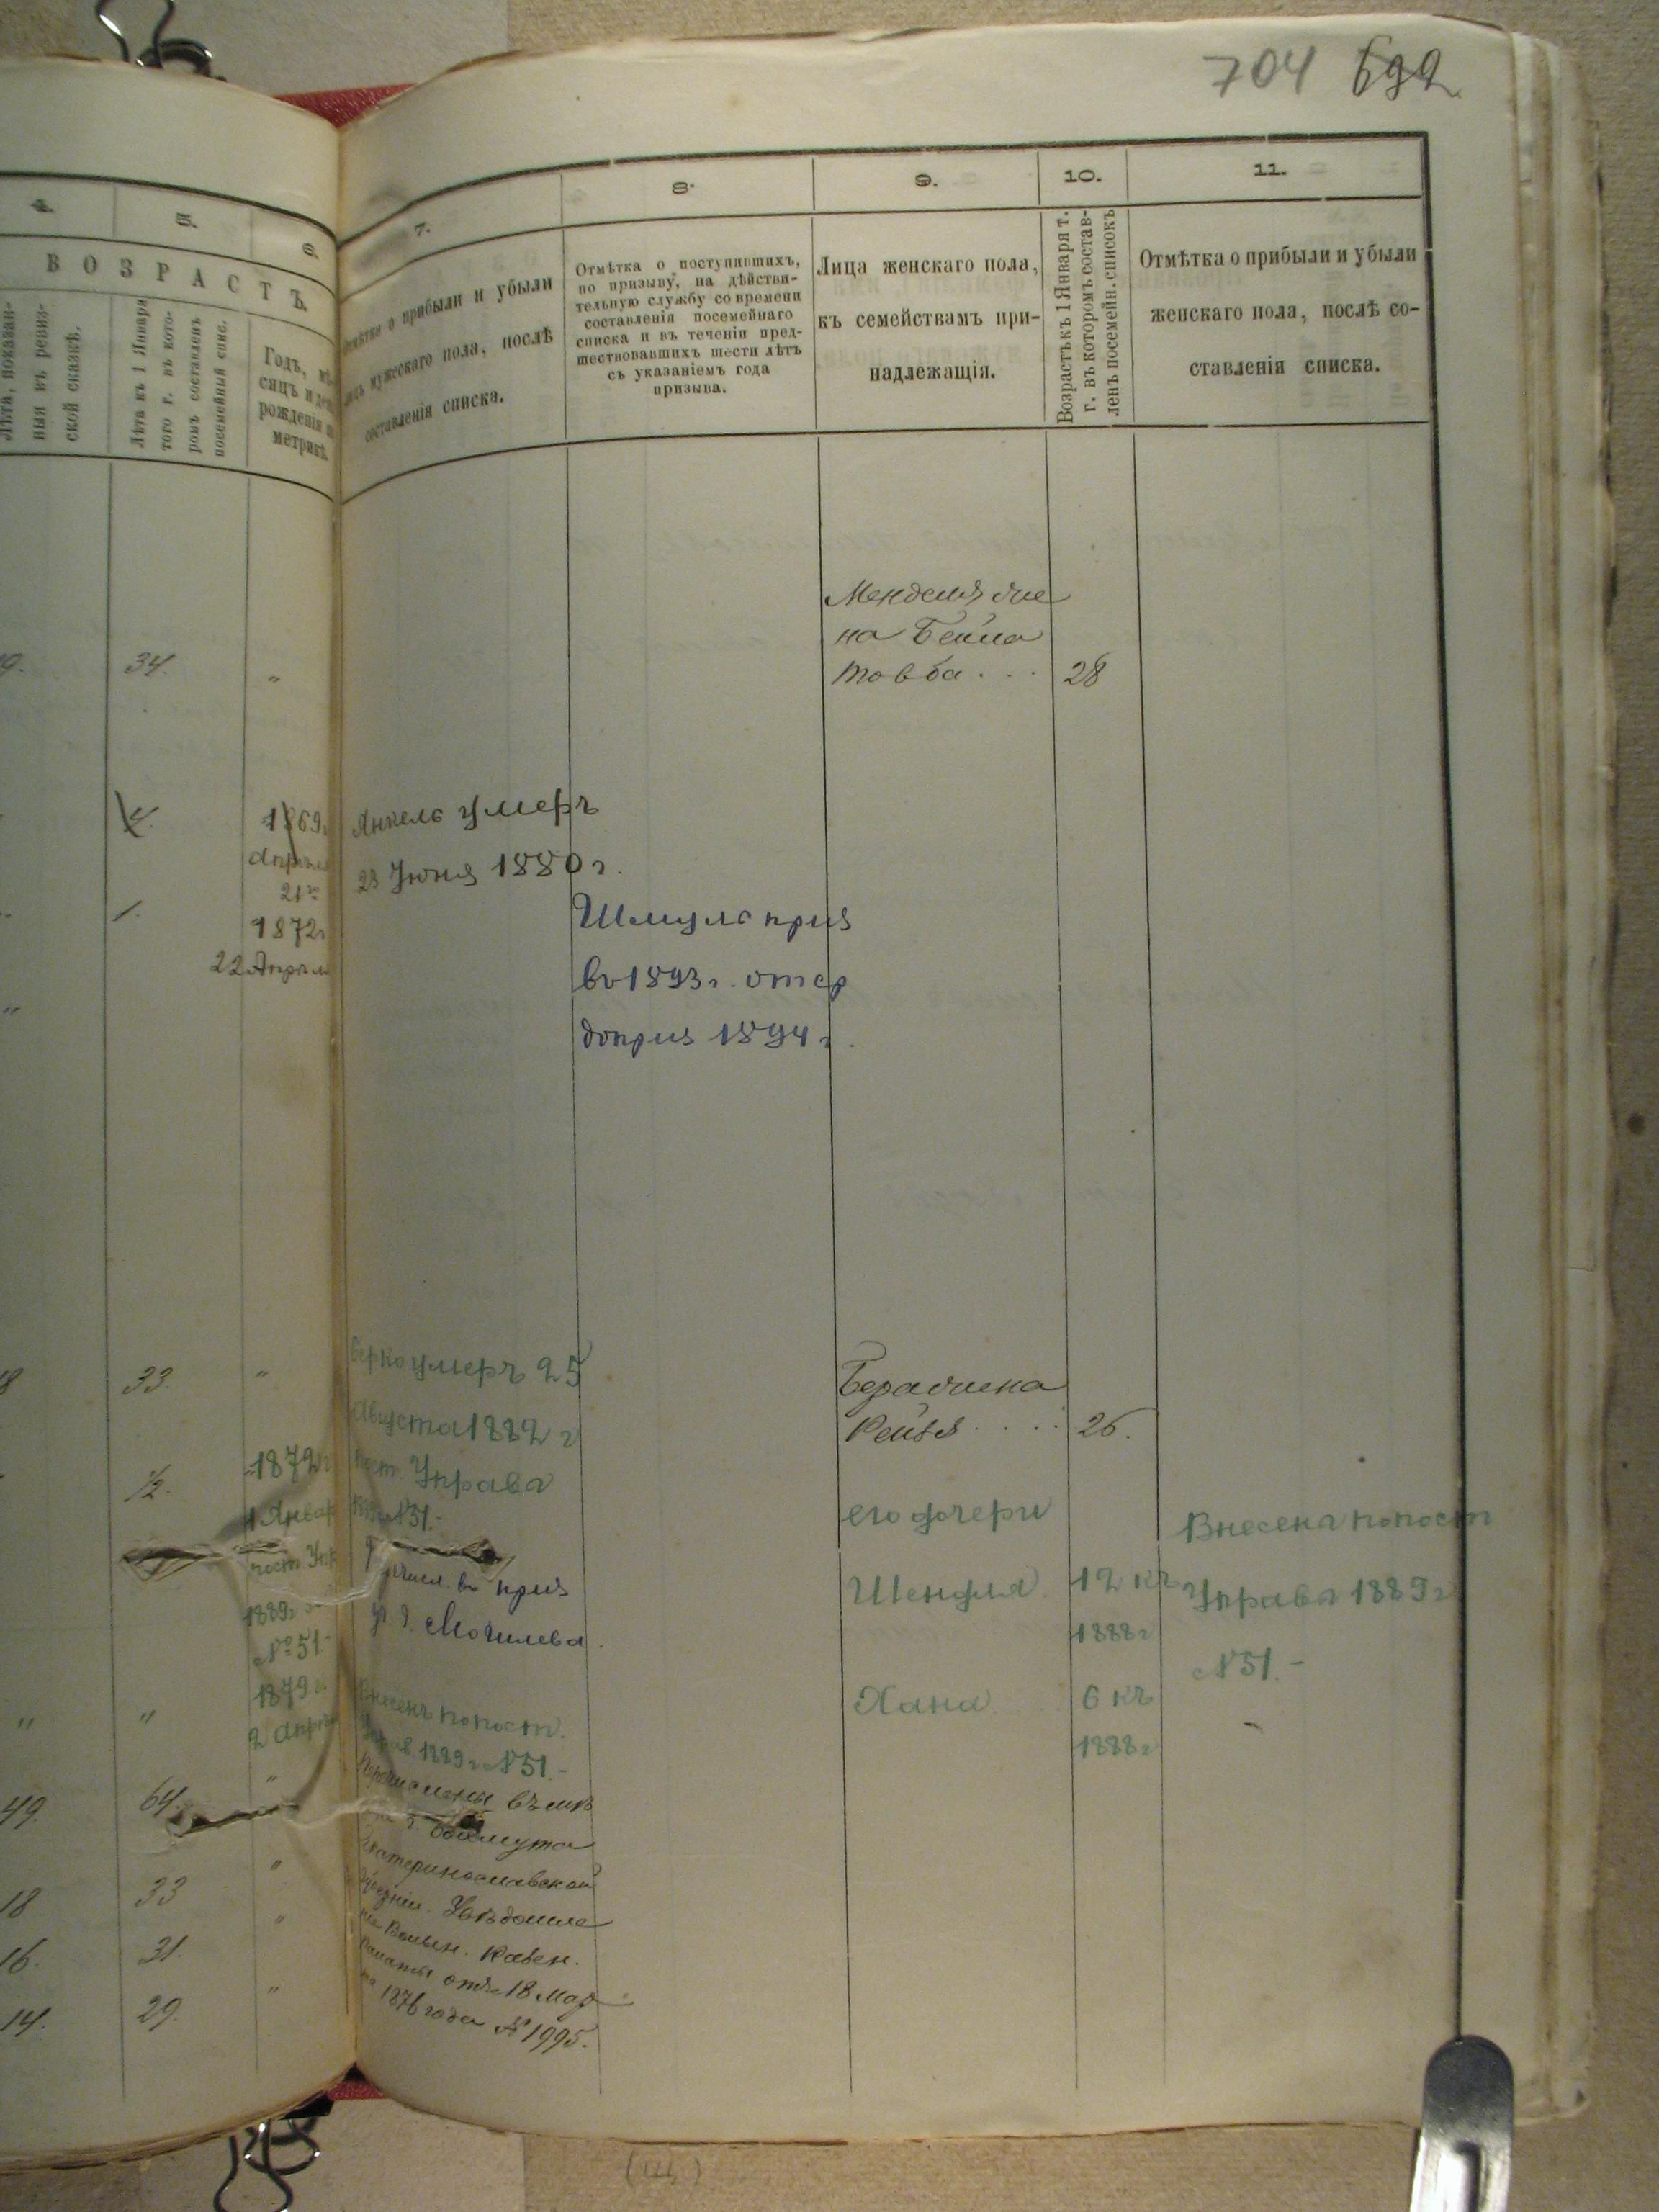 704 692
4. 5. 6.
ВОЗРАСТЪ.
Лѣта, показан-
ныя въ ревиз-
ской сказкѣ.
Лѣта къ 1 Января
того г. въ кото-
ромъ составленъ
посемейный спис.
Годъ, мѣ-
сяцъ и день
рожденія по
метрикѣ.
7. 8. 9. 10. 11.
Отмѣтка о прибыли и убыли
лицъ мужескаго пола, послѣ
составленія списка.
Отмѣтка о поступившихъ,
по призыву, на дѣйстви-
тельную службу со времени
составленія посемейнаго
списка и въ теченіи пред-
шествовавшихъ шести лѣтъ
съ указаніемъ года
призыва.
Лица женскаго пола,
къ семействамъ при-
надлежащія.
Возрастъ къ 1 Января т.
г. въ которомъ состав-
ленъ посемейн. списокъ
Отмѣтка о прибыли и убыли
женскаго пола, послѣ со-
ставленія списка.
Менделя, же
на Бейла
34. "
Товба . . . 28
1869г
Апрѣля
21го
Янкель умеръ
23 Іюня 1880 г.
1. 1872г
22 Апрѣля
Шмуль приз
въ 1893 г. отср
до приз 1894 г.
33. "
Берко умеръ 25
Августа 1882 г
пост. Управа
№ 51.-
Берки жена
Рейзя . . . . 26.
1/2. 1872г
1 Январ
пост Упр
1889г
№ 51.-
въ приз
уч. г. Могилева.
его дочери
Шендля. 12 къ
1888 г
Хана 6 къ
1888 г
Внесена по пост
Управа 1889 г
№ 51.-
" " 1879 г.
2 Апрѣ
Внесенъ по пост.
Управ. 1889 г № 51.-
49. 64. "
18 33 "
16. 31. "
14. 29. "
Перечислены въ мѣщ
г. Бахмута
Екатеринославской
Губерніи. Увѣдомле
ніе Волын. Казен.
Палаты отъ 18 Мар
та 1876 года № 1995.